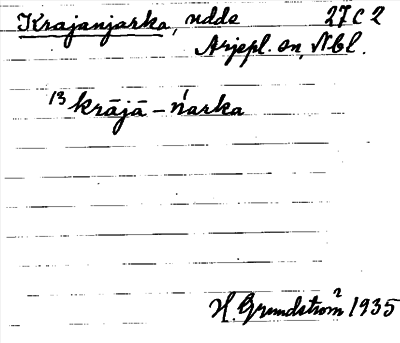 Krajanjarka, udde 27C2
Arjepl. sn, Nbl.
13 krājā - ńarka
H. Grundström 2 1935